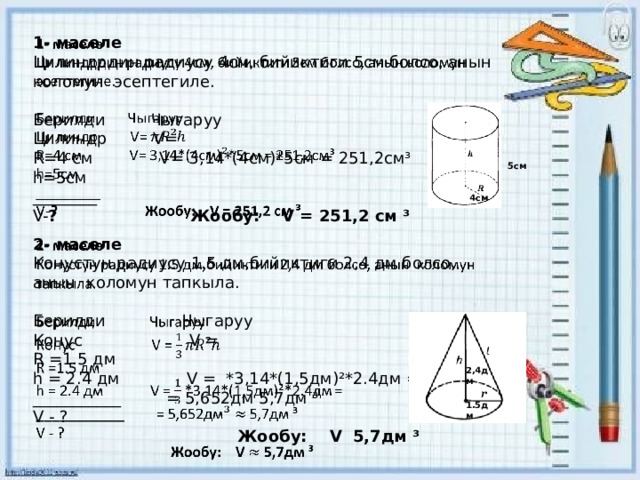 1- маселе
Цилиндрдин радиусу 4см, бийиктиги 5см болсо, анын
көлөмүн эсептегиле.
Берилди Чыгаруу
Цилиндр V=
R=4 см V= 3,14*(4см)²*5см = 251,2см³
h=5см
V-? Жообу: V = 251,2 см ³
2- маселе
Конустун радиусу 1,5 дм,бийиктиги 2,4 дм болсо,
анын көлөмүн тапкыла.
Берилди Чыгаруу
Конус V =
R =1,5 дм
h = 2.4 дм V = *3,14*(1,5дм)²*2.4дм =
= 5,652дм 5,7дм ³
V - ?
Жообу: V 5,7дм ³
h
R
5см
4см
h
l
r
2,4д
м
1.5д
м